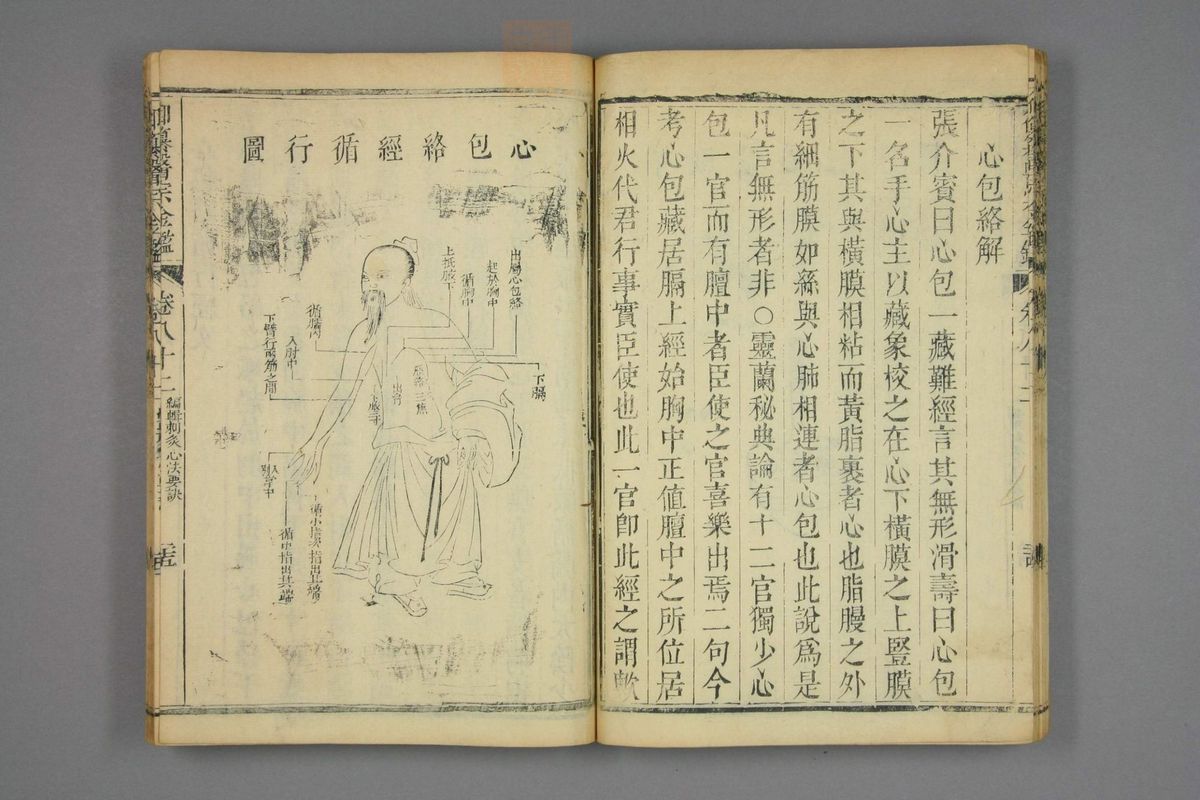 心包絡解
張介賓曰心包一藏難經言其無形滑壽曰心包
一名手心主以藏象校之在心下橫膜之上豎膜
之下其與橫膜相粘而黃脂裹者心也脂膜之外
有細筋膜如絲與心肺相連者心包也此說爲是
凡言無形者非○靈蘭秘典論有十二官獨少心
包一官而有膻中者臣使之官喜樂出焉二句今
考心包藏居膈上經始胸中正值膻中之所位居
相火代君行事實臣使也此一官卽此經之謂歟
心包絡經循行圖
出屬心包絡
起於胸中
循胸中
上抵腋下
循臑內
入肘中
下臂行兩筋之間
下膈
歷絡三焦
出脅
下腋三寸
入掌中
別
循小指次指出其端
循中指出其端
御纂醫宗金鑑
卷八十二
編輯刺灸心法要訣